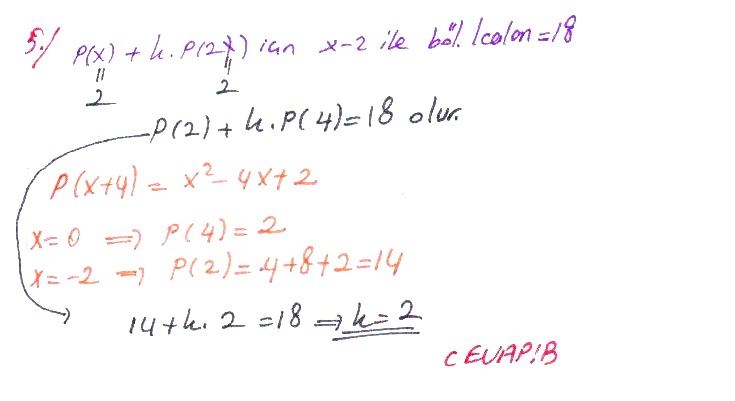 5./ P(x) + k.P(2x) in x-2 ile böl. kalan = 18
= 2 = 2
P(2) + k.P(4) = 18 olur.
P(x+4) = x² - 4x + 2
x = 0 ⇒ P(4) = 2
x = -2 ⇒ P(2) = 4+8+2 = 14
14 + k. 2 = 18 ⇒ k = 2
CEVAP: B